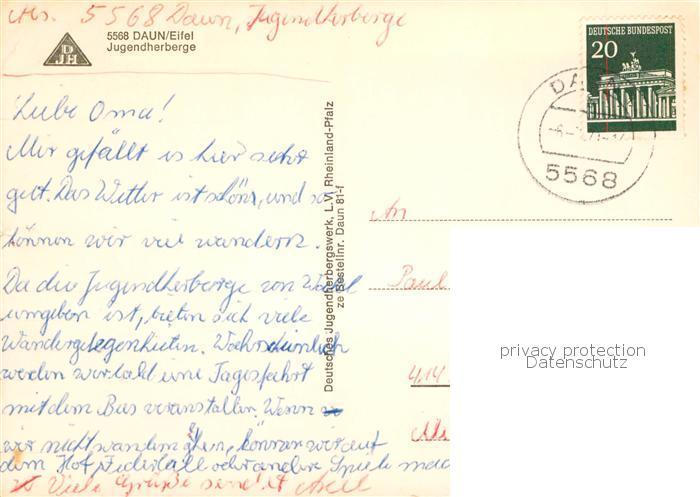 Abs. 5568 Daun, Jugendherberge
5568 DAUN/Eifel
Jugendherberge
DJH
DEUTSCHE BUNDESPOST
20
5568
Liebe Oma!
Mir gefällt es hier sehr
gut. Das Wetter ist schön, und so
können wir viel wandern.
Da die Jugendherberge von Wald
umgeben ist, bieten sich viele
Wandergelegenheiten. Wahrscheinlich
werden wir bald eine Tagesfahrt
mit dem Bus veranstalten. Wenn
wir nicht wandern gehen, können wir auf
dem Hof Federball oder andere Spiele mac
Viele Grüße sendet
Deutsches Jugendherbergswerk, L.V. Rheinland-Pfalz
ze Bestellnr. Daun 81-f
An
Paul
414
privacy protection
Datenschutz